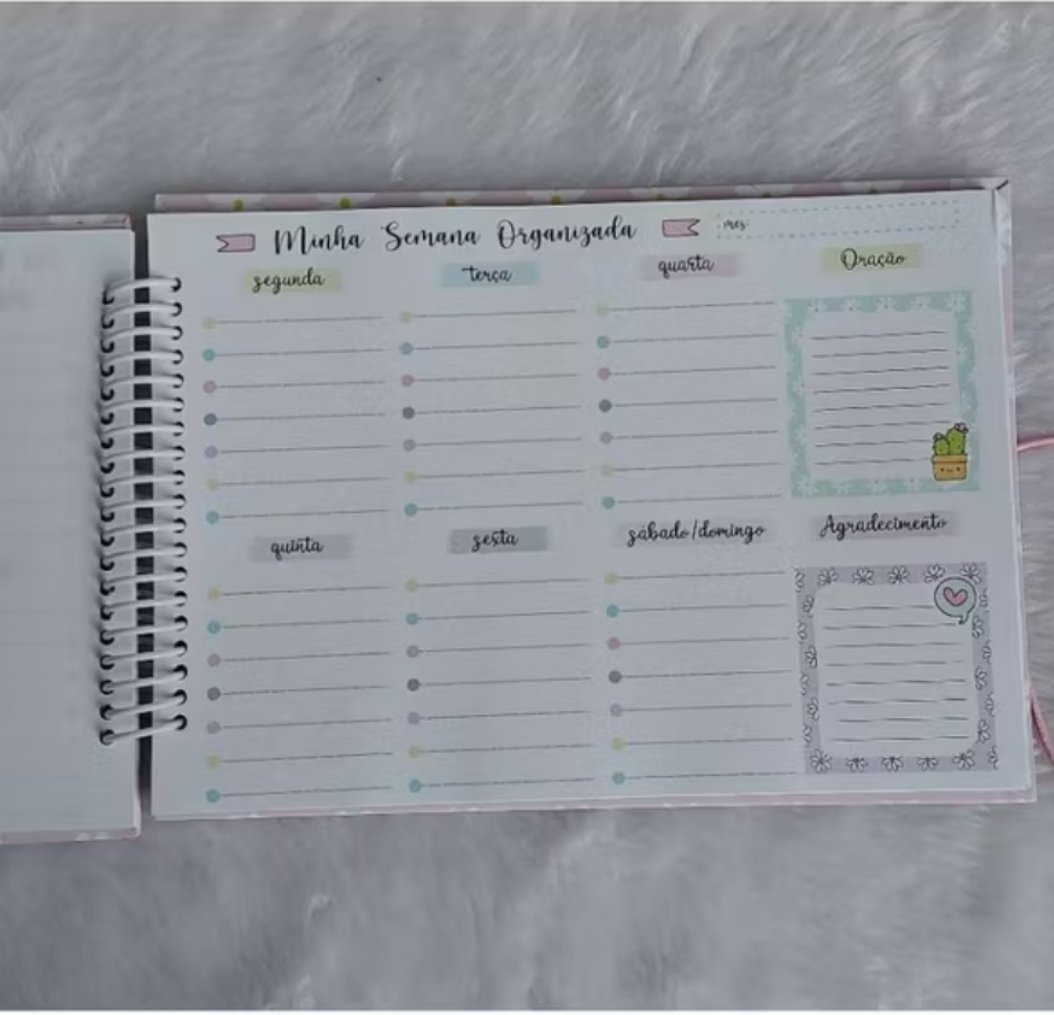 Minha Semana Organizada mes:
segunda terça quarta Oração
quinta sexta sábado/domingo Agradecimento